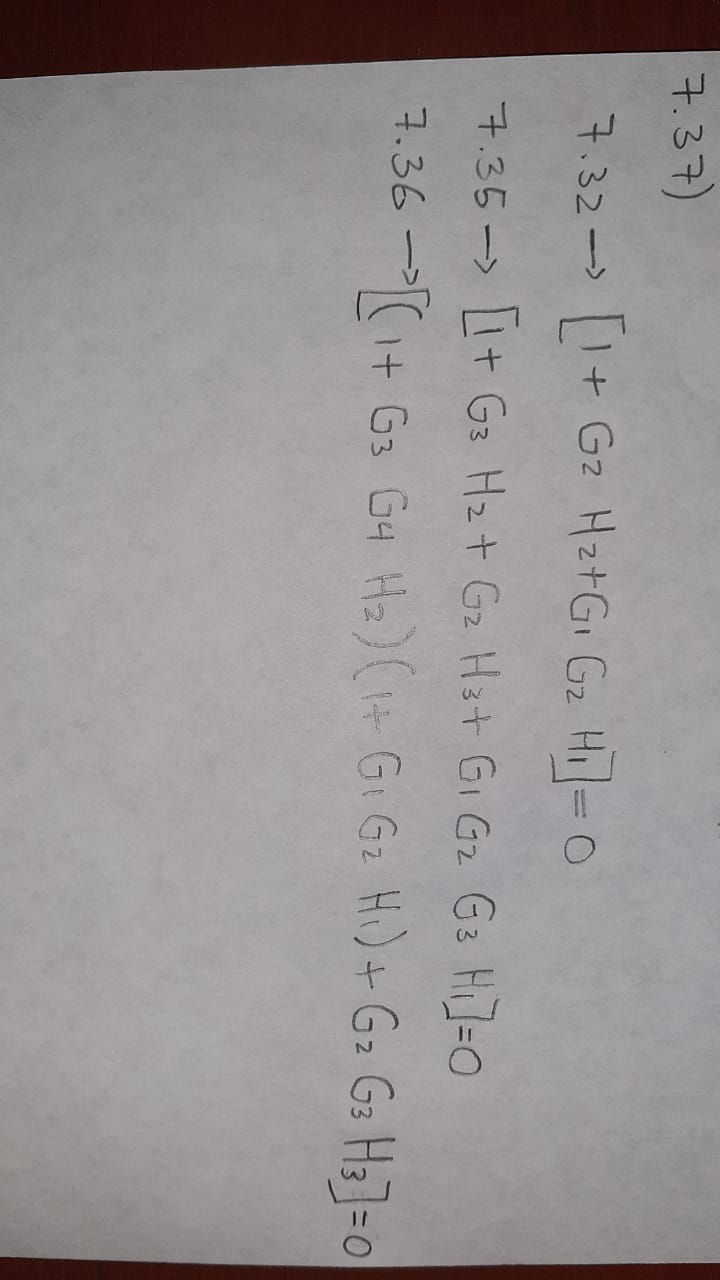 7.37)
7.32 → [1 + G2 H2 + G1 G2 H1] = 0
7.35 → [1 + G3 H2 + G2 H3 + G1 G2 G3 H1] = 0
7.36 → [(1 + G3 G4 H2)(1 + G1 G2 H1) + G2 G3 H3] = 0